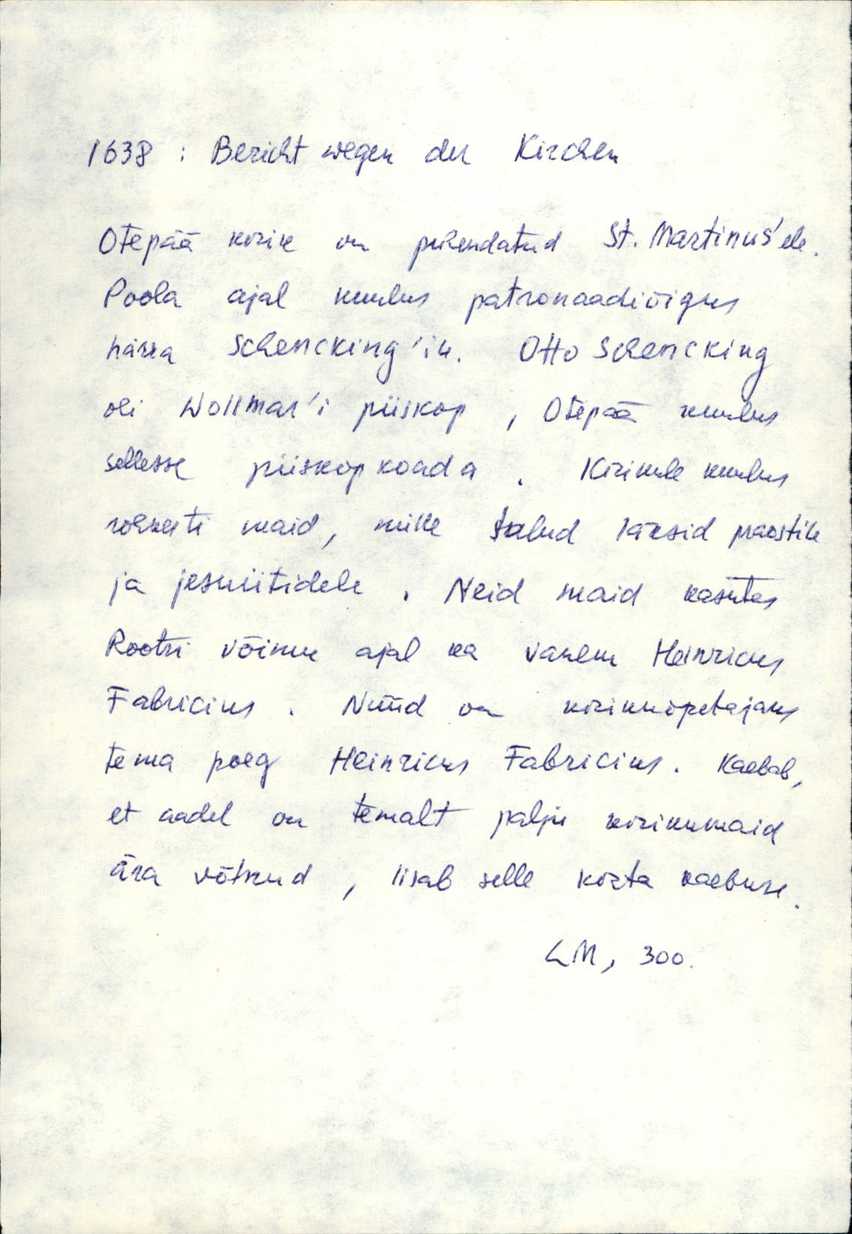 1638 : Bericht wegen der Kirchen
Otepää kirik on pühendatud St. Martinus'ele.
Poola ajal kuulus patronaadiõigus
härra Schencking'ile. Otto Schencking
oli Wollmar'i piiskop, Otepää kuulus
sellesse piiskopkonda. Kirikule kuulus
rohkesti maid, mille talud läksid praostile
ja jesuiitidele. Neid maid kasutas
Rootsi võimu ajal ka vanem Heinricus
Fabricius. Nüüd on kirikuõpetajaks
tema poeg Heinricus Fabricius. Kaebab,
et aadel on temalt palju kirikumaid
ära võtnud, lisab selle kohta kaebuse.
LM, 300.